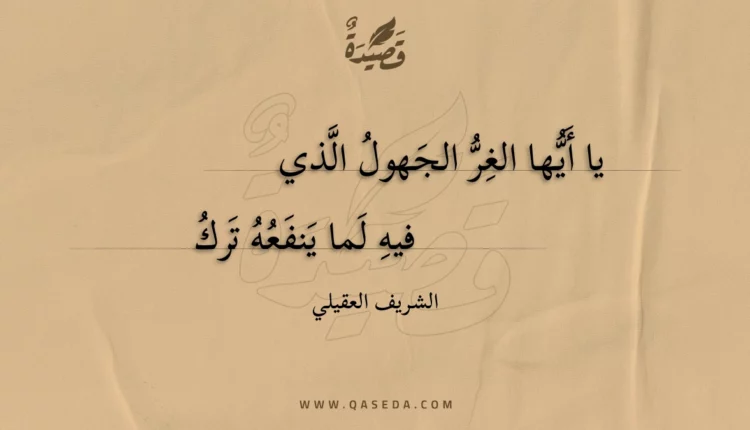 قَصِيدَةٌ
يا أَيُّها الغِرُّ الجَهولُ الَّذي
فيهِ لَما يَنفَعُهُ تَركُ
الشريف العقيلي
WWW.QASEDA.COM